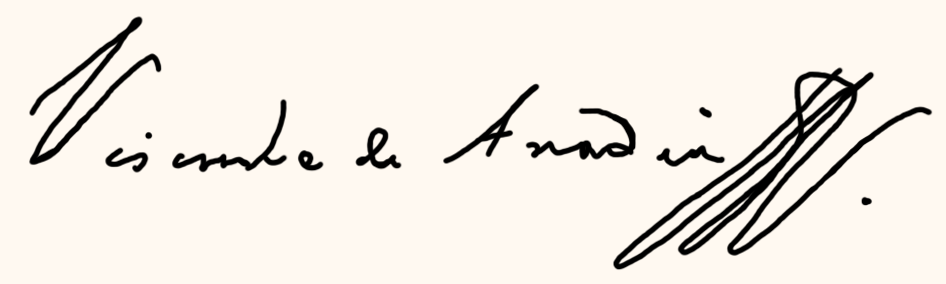 Visconde de Anadia